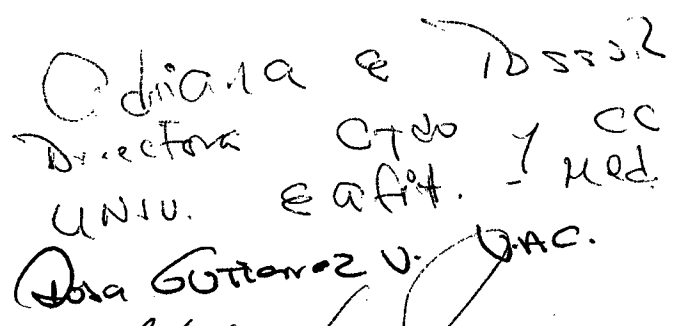 Adriana E
Directora CTdo y CC
UNIV. Eafit. - Med.
Rosa GUTIERREZ V. U.AC.